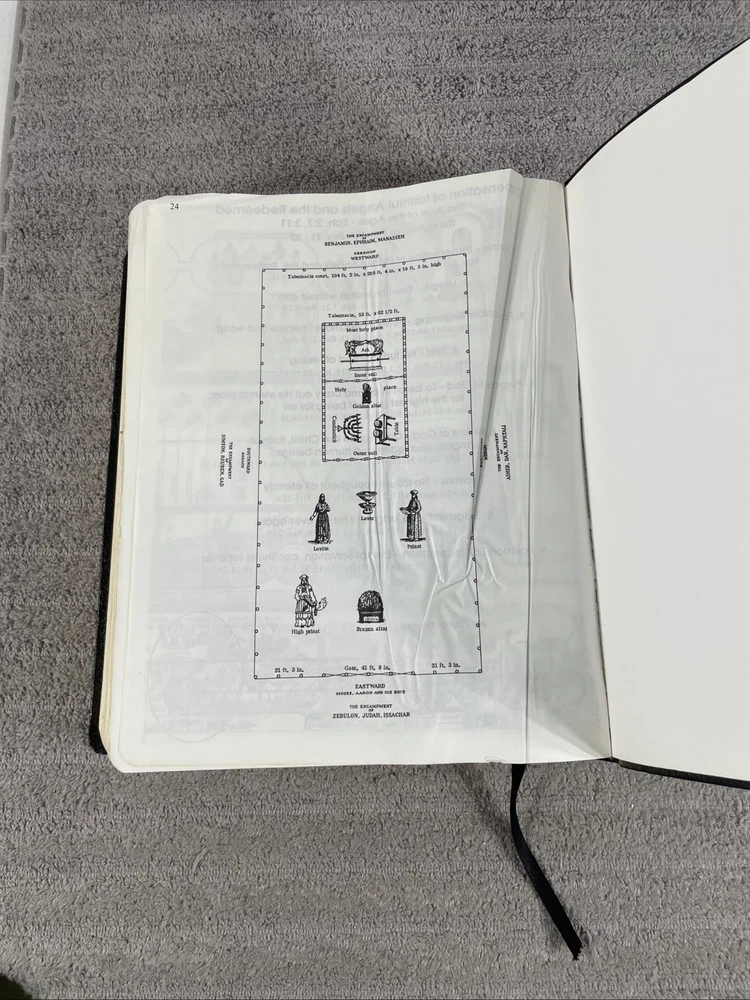 24
THE ENCAMPMENT
OF
BENJAMIN, EPHRAIM, MANASSEH
GERSHON
WESTWARD
Tabernacle court, 104 ft. 2 in. x 208 ft. 4 in. x 10 ft. 5 in. high
Tabernacle, 25 ft. x 62 1/2 ft.
Most holy place
Ark
Inner veil
Holy place
Golden altar
Candlestick
Table
Outer veil
SOUTHWARD
THE ENCAMPMENT
OF
SIMEON, REUBEN, GAD
THE ENCAMPMENT
OF
ASHER, DAN, NAPHTALI
Laver
Levite
Priest
High priest
Brazen altar
31 ft. 3 in.
Gate, 41 ft. 8 in.
31 ft. 3 in.
EASTWARD
MOSES, AARON AND HIS SONS
THE ENCAMPMENT
OF
ZEBULON, JUDAH, ISSACHAR